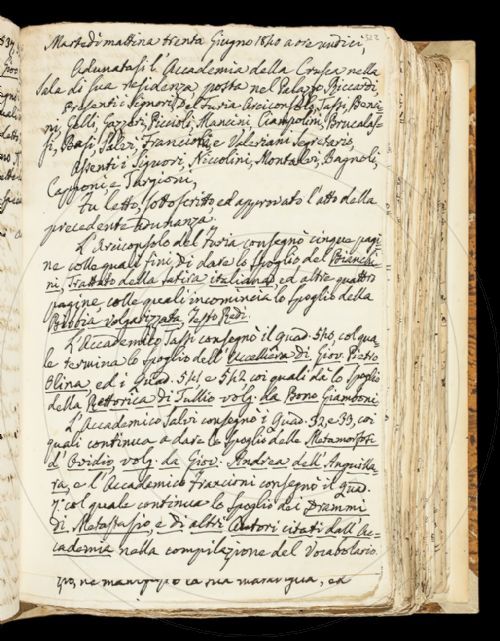 322
Martedì mattina trenta Giugno 1840 a ore undici,
Adunatasi l'Accademia della Crusca nella
Sala di sua residenza posta nel Palazzo Riccardi,
Presenti i Signori Del Furia Arciconsolo, Tassi, Benci=
ni, Gelli, Gazzeri, Piccioli, Mancini, Ciampolini, Brucalas=
si, Basi, Salvi, Francioni e Valeriani Segretario,
Assenti i Signori, Niccolini, Montalvi, Bagnoli,
Capponi e Targioni,
Fu letto, sottoscritto ed approvato l'atto della
precedente Adunanza.
L'Arciconsolo del Furia consegnò cinque pagi
ne colle quali finì di dare lo spoglio del Bianchi
ni, Trattato della satira italiana, ed altre quattro
pagine, colle quali incomincia lo spoglio della
Bibbia volgarizzata Testo Redi.
L'Accademico Tassi consegnò il quad. 540, col qua
le termina lo spoglio dell'Uccelliera di Giov. Pietro
Olina ed i Quad. 541 e 542 coi quali dà lo spoglio
della Rettorica di Tullio volg. da Bono Giamboni
L'Accademico Salvi consegnò i Quad. 32 e 33, coi
quali continua a dare lo spoglio delle Metamorfosi
d'Ovidio, volg. da Giov. Andrea dell'Anguilla
ra, e l'Accademico Francioni consegnò il Quad
7 col quale continua lo spoglio dei Drammi
di Metastasio e di altri Autori citati dall'Ac=
cademia nella compilazione del Vocabolario.